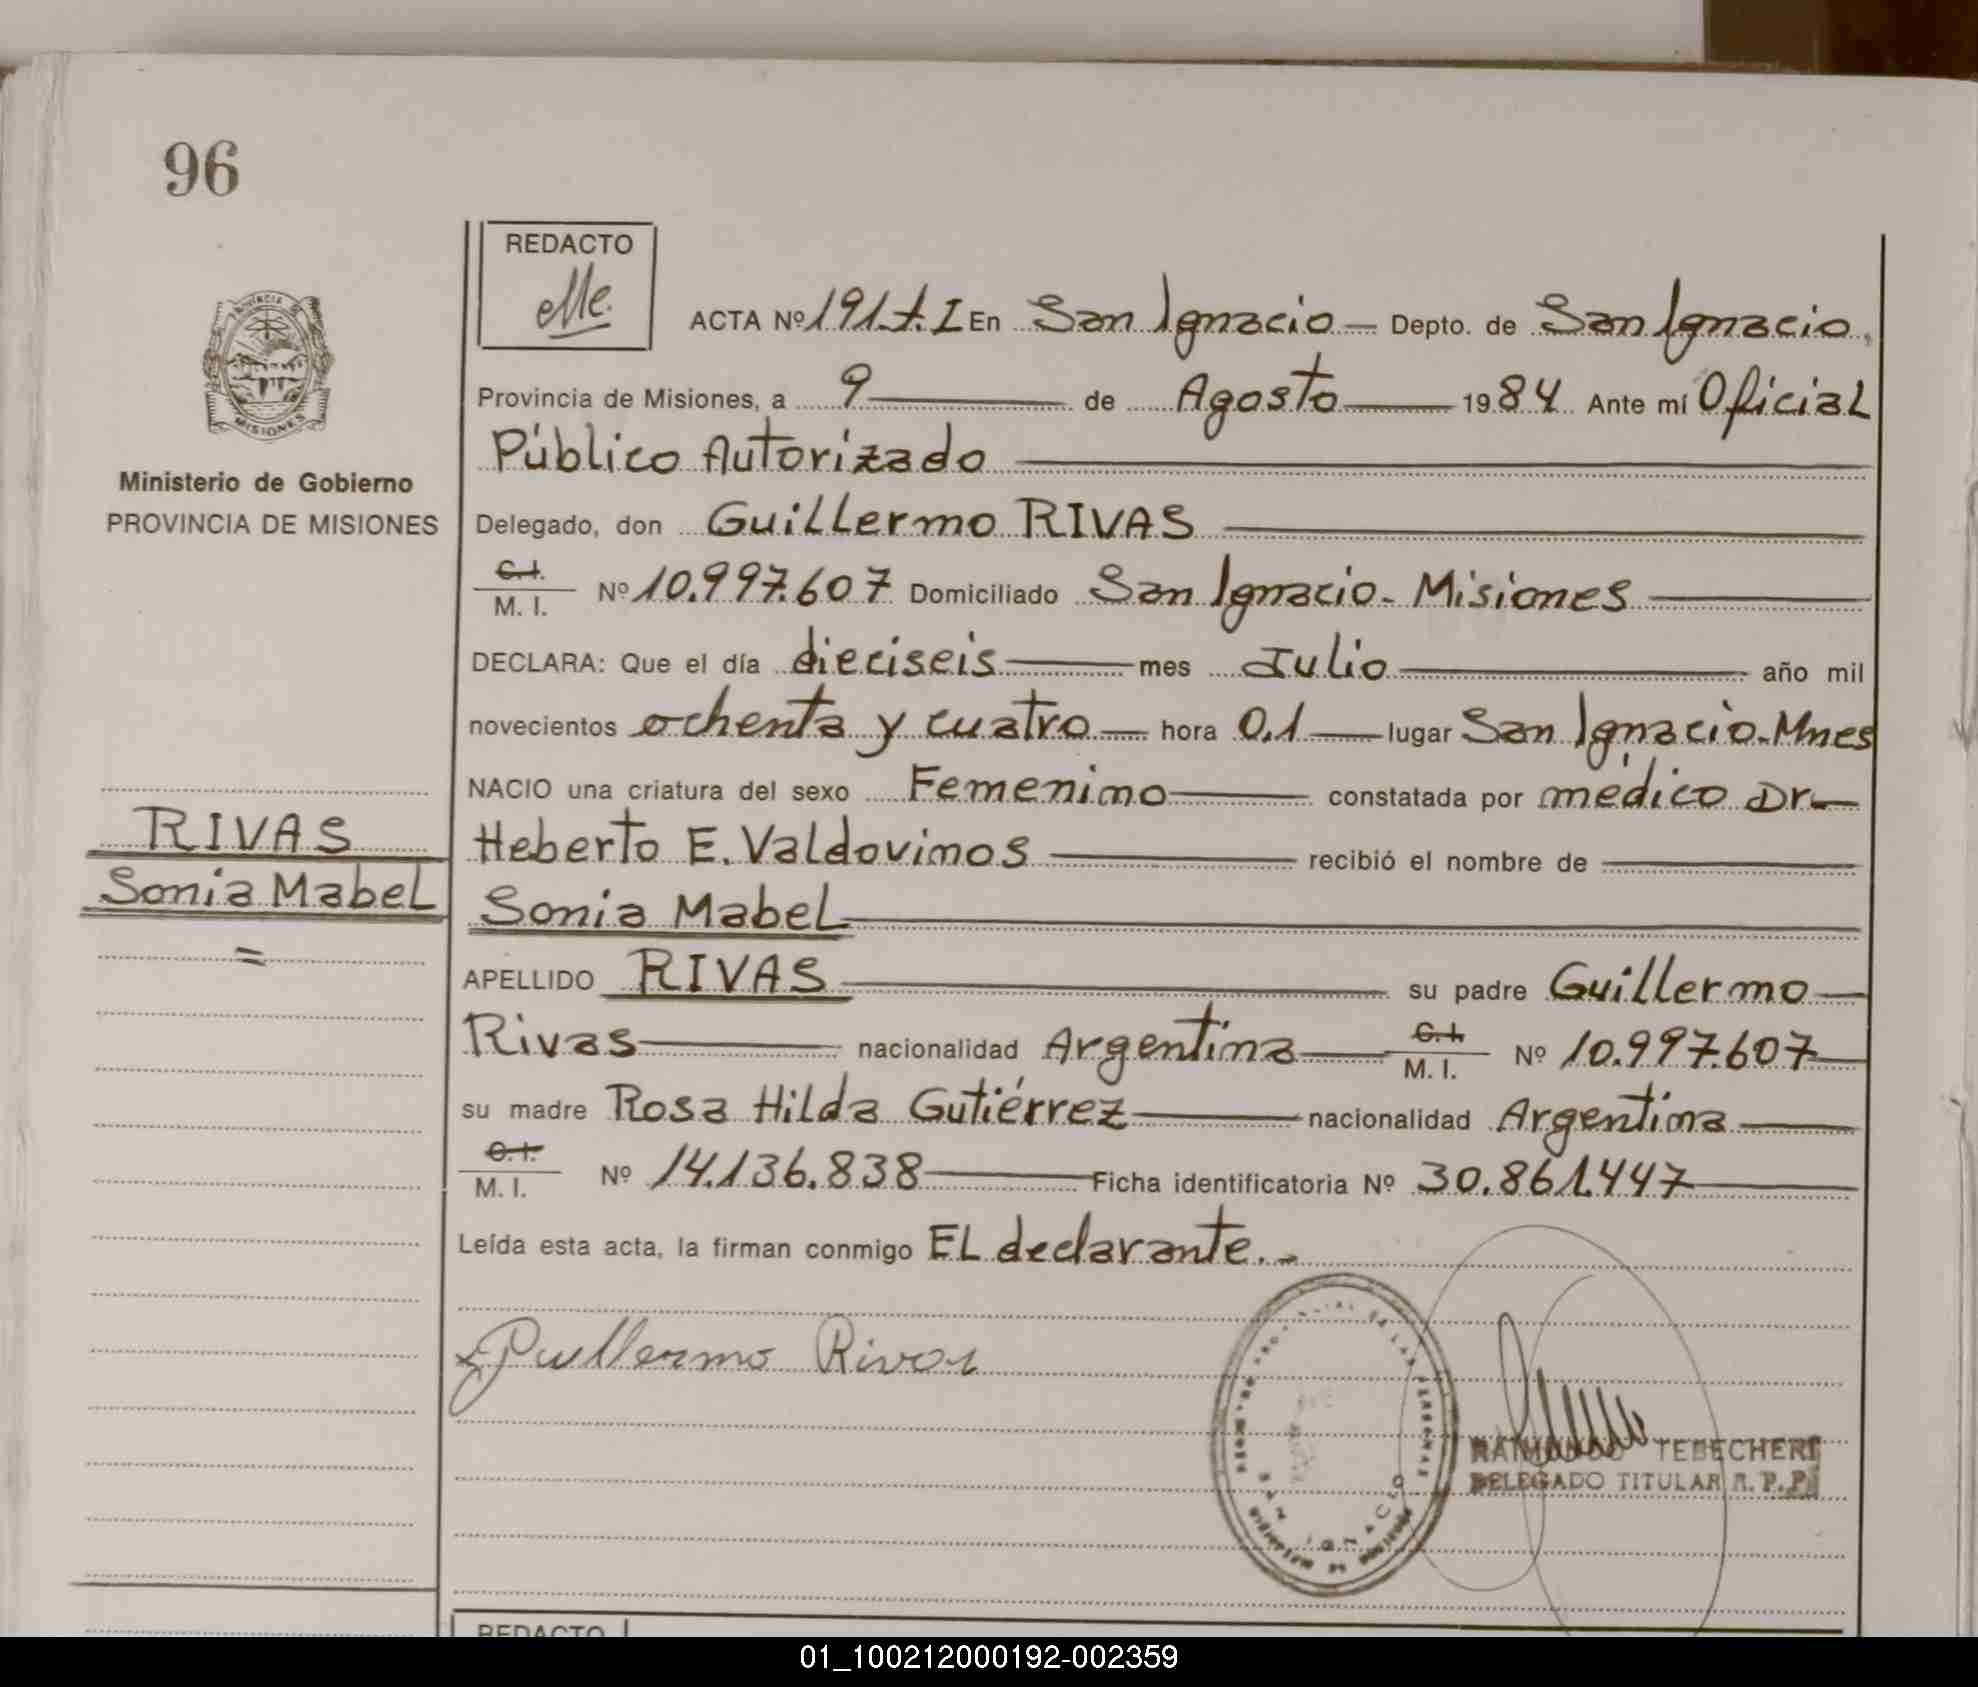 96
REDACTO
ACTA Nº 191.t.I En San Ignacio Depto. de San Ignacio,
Provincia de Misiones, a 9 de Agosto 1984 Ante mí Oficial
Público Autorizado
Ministerio de Gobierno
PROVINCIA DE MISIONES
Delegado, don Guillermo RIVAS
C.I. M. I. Nº 10.997.607 Domiciliado San Ignacio - Misiones
DECLARA: Que el día dieciseis mes Julio año mil
novecientos ochenta y cuatro hora 0,1 lugar San Ignacio-Mnes
NACIO una criatura del sexo Femenino constatada por médico Dr
RIVAS
Heberto E. Valdovinos recibió el nombre de
Sonia Mabel
Sonia Mabel
APELLIDO RIVAS su padre Guillermo
Rivas nacionalidad Argentina C.I. M. I. Nº 10.997.607
su madre Rosa Hilda Gutiérrez nacionalidad Argentina
C.I. M. I. Nº 14.136.838 Ficha identificatoria Nº 30.861.447
Leída esta acta, la firman conmigo EL declarante.-
Guillermo Rivas
SAN IGNACIO
RAIMUNDO TEDECHERI
DELEGADO TITULAR R. P. P.
REDACTO
01_100212000192-002359